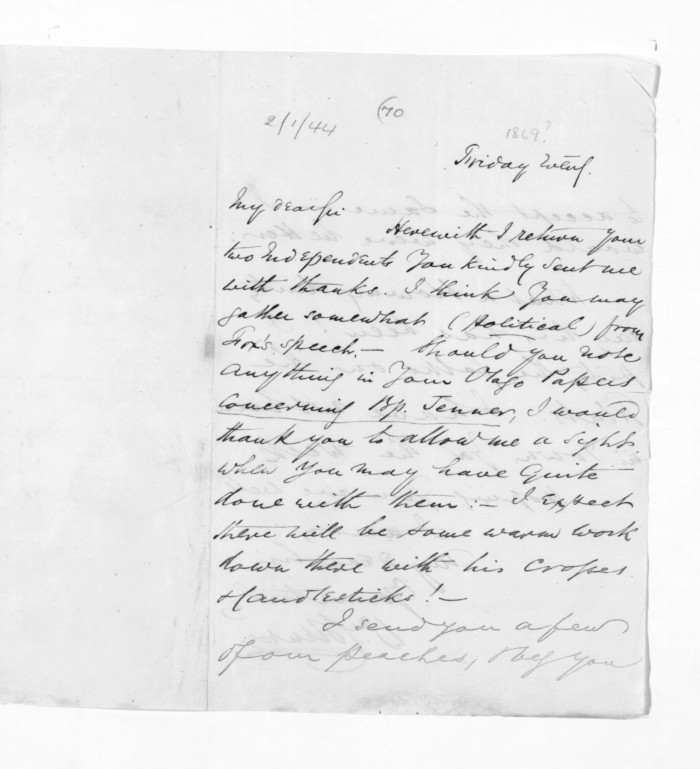 2/1/44
(70
1869?
Friday
My dear Sir
Herewith I return your
two Independents you kindly sent me
with thanks. I think you may
gather somewhat (Political) from
Fox's speech. — Should you note
anything in Your Otago Papers
concerning Bp. Jenner, I would
thank you to allow me a sight
when you may have quite
done with them: — I expect
there will be some warm work
down there with his Crosses
& Candlesticks! —
I send you a few
of our peaches, & beg you